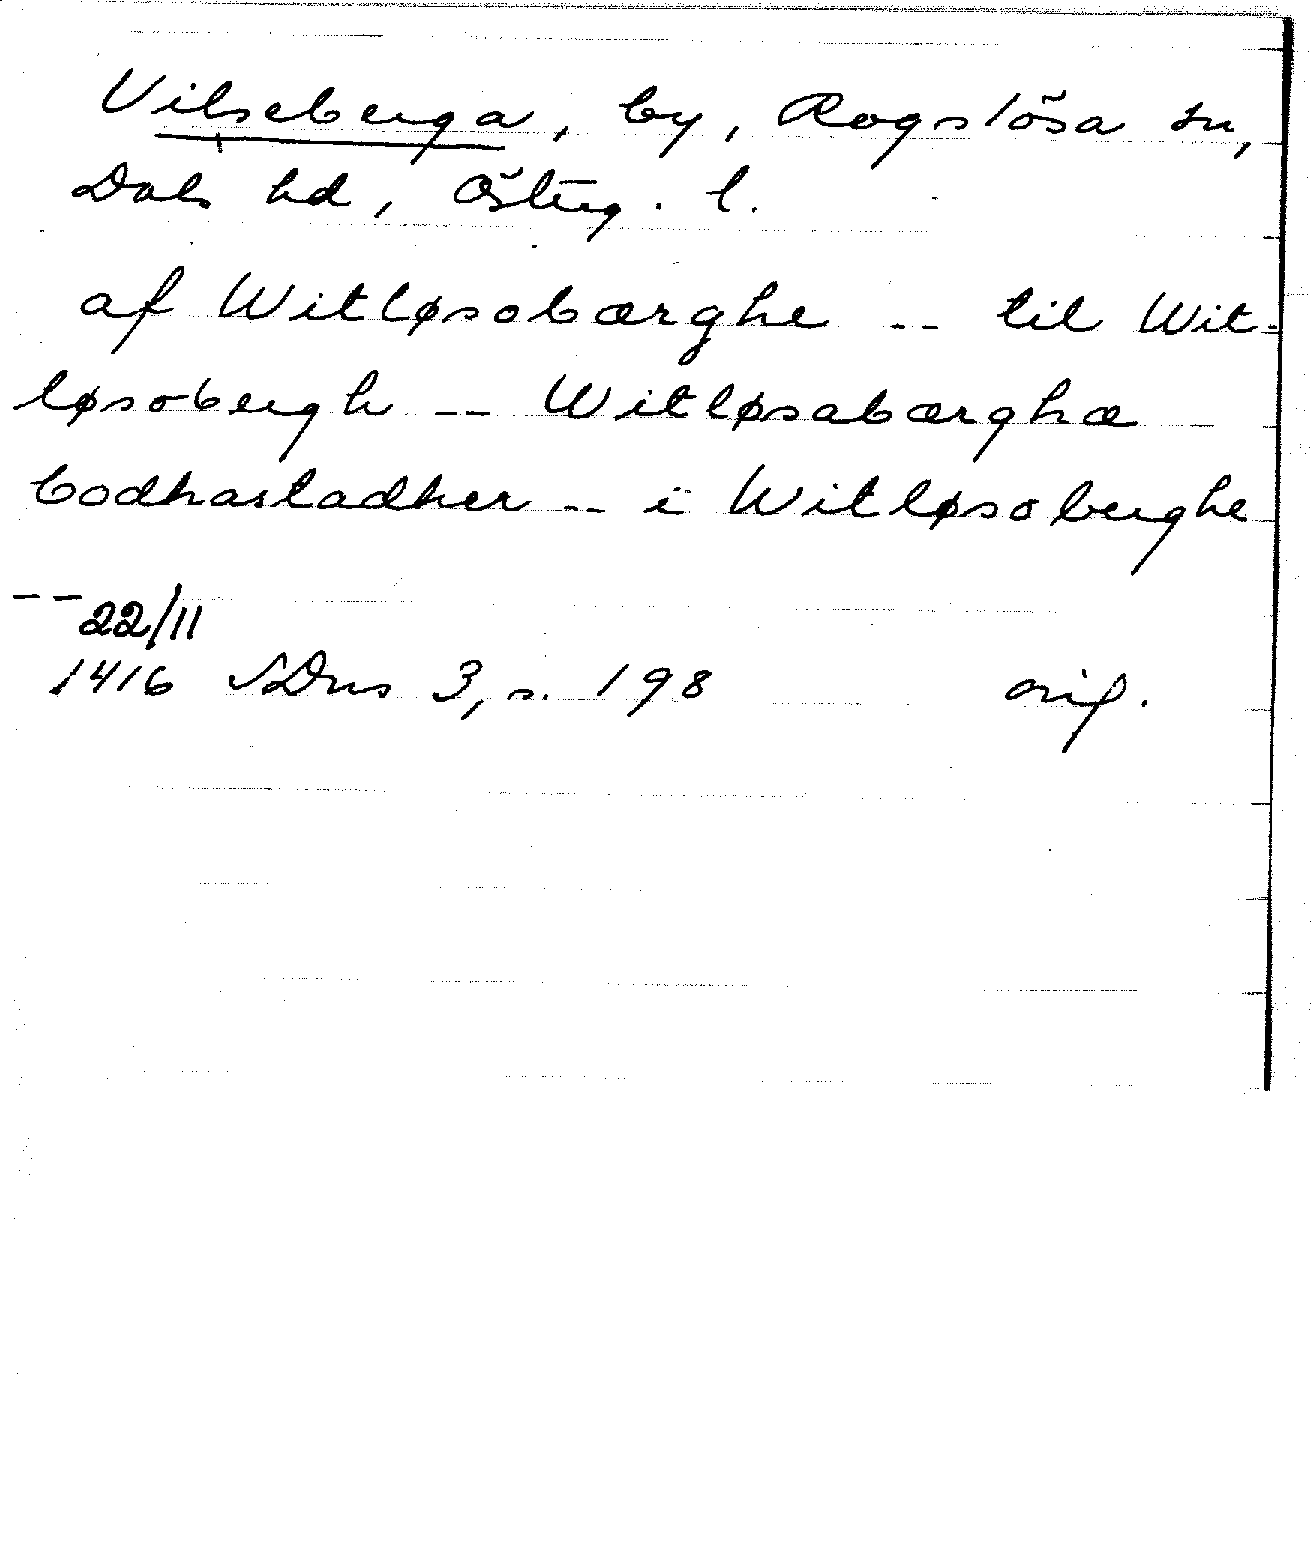 Vilseberga, by, Rogslösa sn,
Dals hd, Österg. l.
af Witløsobærghe -- til Wit-
løsobergh -- Witløsabærghæ
bodhastadher -- i Witløsoberghe
-- 22/11
1416 SDns 3, s. 198 orig.